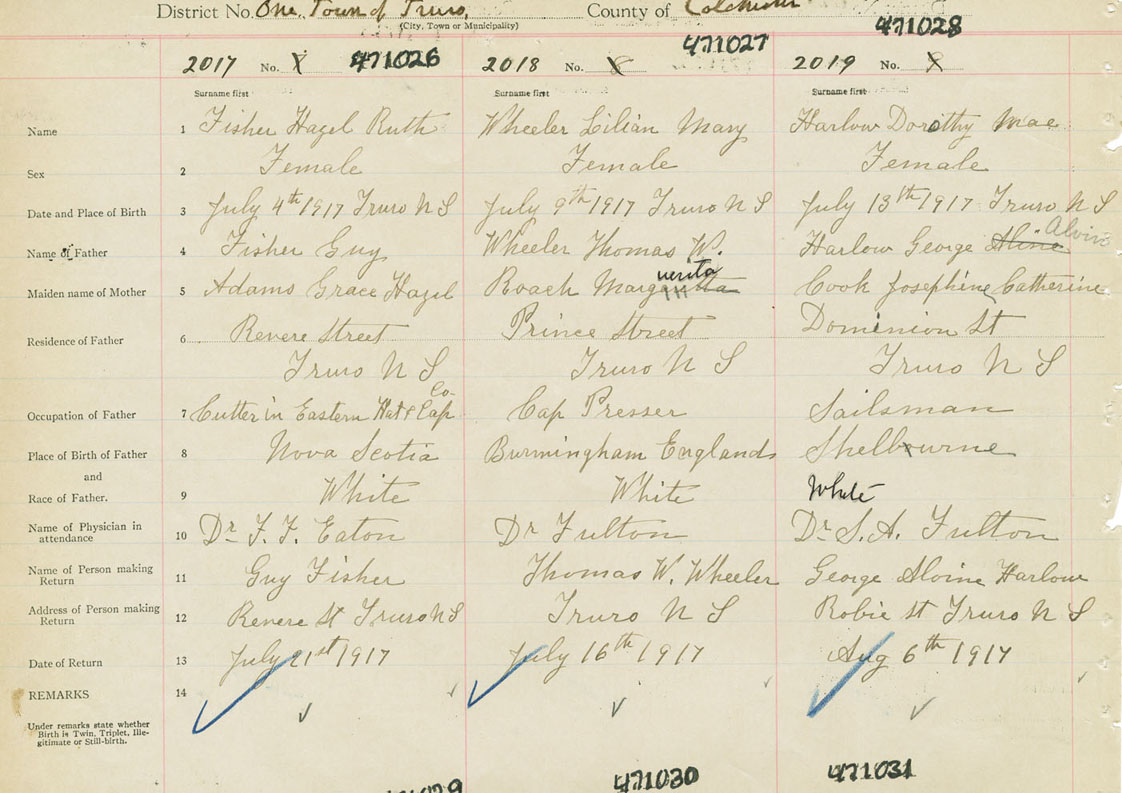 District No. One, Town of Truro, County of Colchester
(City, Town or Municipality)
2017 No. 471026 2018 No. 8 471027 2019 No. 8 471028
Surname first Surname first Surname first
Name 1 Fisher Hazel Ruth Wheeler Lilian Mary Harlow Dorothy Mae
Sex 2 Female Female Female
Date and Place of Birth 3 July 4th 1917 Truro N S July 9th 1917 Truro N S July 13th 1917 Truro N S
Name of Father 4 Fisher Guy Wheeler Thomas W. Harlow George Alvin
Maiden name of Mother 5 Adams Grace Hazel Roach Marguerita Cook Josephine Catherine
Residence of Father 6 Revere Street Prince Street Dominion St
Truro N S Truro N S Truro N S
Occupation of Father 7 Cutter in Eastern Hat & Cap Co. Cap Presser Sailsman
Place of Birth of Father 8 Nova Scotia Burmingham England Shelbourne
and
Race of Father. 9 White White White
Name of Physician in attendance 10 Dr F. F. Eaton Dr Fulton Dr S. A. Fulton
Name of Person making Return 11 Guy Fisher Thomas W. Wheeler George Alvine Harlow
Address of Person making Return 12 Revere St Truro N S Truro N S Robie St Truro N S
Date of Return 13 July 21st 1917 July 16th 1917 Aug 6th 1917
REMARKS 14
Under remarks state whether
Birth is Twin, Triplet, Ille-
gitimate or Still-birth.
471030 471031